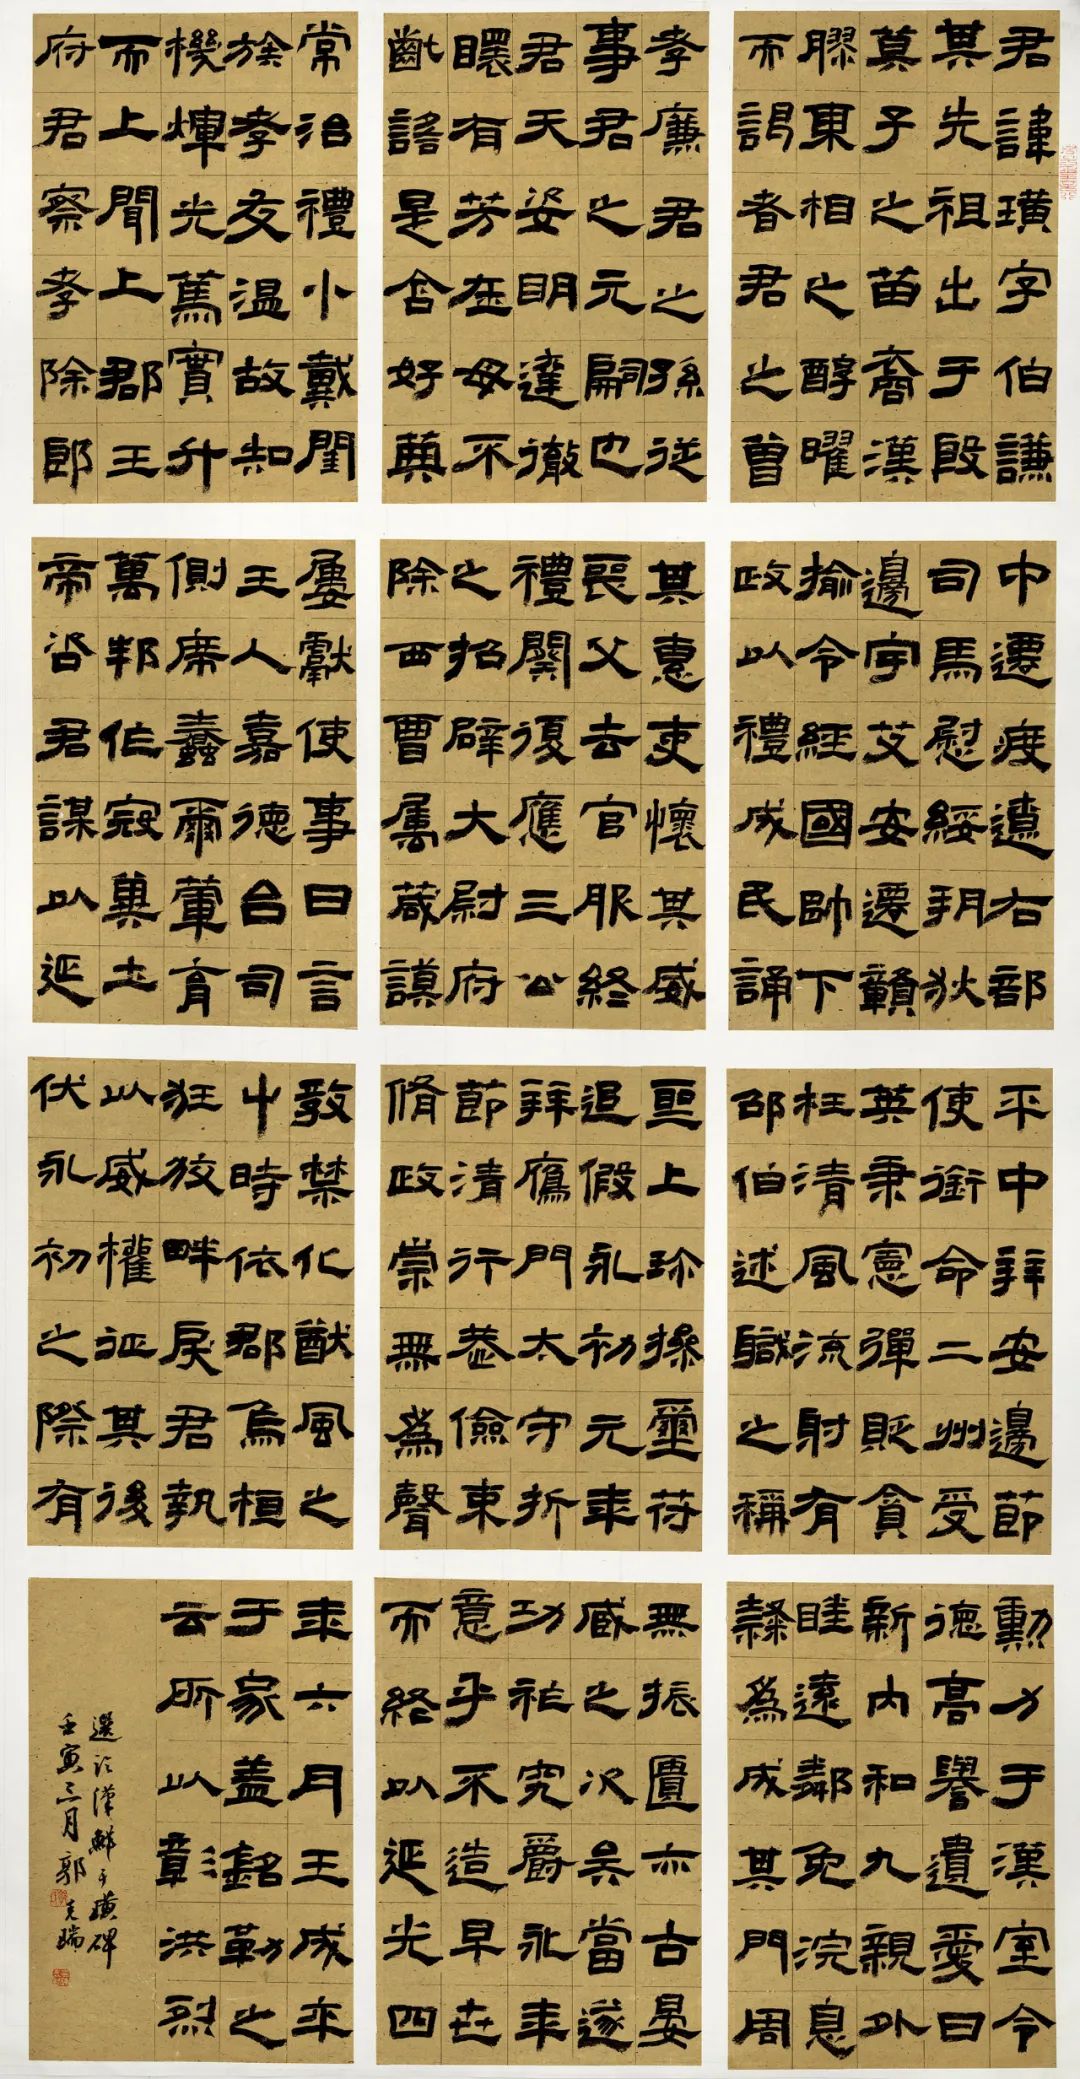 君諱璜字伯謙
其先祖出于殷
箕子之苗裔漢
膠東相之醇曜
而謁者君之曾
孝廉君之孫從
事君之元嗣也
君天姿明達徹
瞏有芳在母不
齔諮是含好典
常治禮小戴閨
族孝友溫故知
機煇光篤實升
而上聞上郡王
府君察孝除郎
中遷度遼右部
司馬慰綏朔狄
邊宇艾安遷贛
揄令經國帥下
政以禮成民誦
其惠吏懷其威
喪父去官服終
禮闋復應三公
之招辟大尉府
除西曹屬葴謨
屢獻使事日言
王人嘉德台司
側席蠢爾葷育
萬邦作寇冀土
帝咨君謀以延
平中拜安邊節
使銜命二州受
莢秉憲彈貶貪
枉清風流射有
邵伯述職之稱
聖上珍操璽符
追假永初元年
拜鴈門太守折
節清行恭儉束
脩政崇無為聲
教禁化猷風之
中時依郡烏桓
狂狡畔戾君執
以威權征其後
伏永初之際有
勳力于漢室令
德高譽遺愛日
新內和九親外
睦遠鄰免浣息
隸為成其門周
無振匱亦古晏
臧之次矣當遂
功祚究爵永年
意乎不造早世
而終以延光四
年六月壬戌卒
于家蓋銘勒之
云所以章彰洪烈
選臨漢鮮于璜碑
壬寅三月郭克瑞